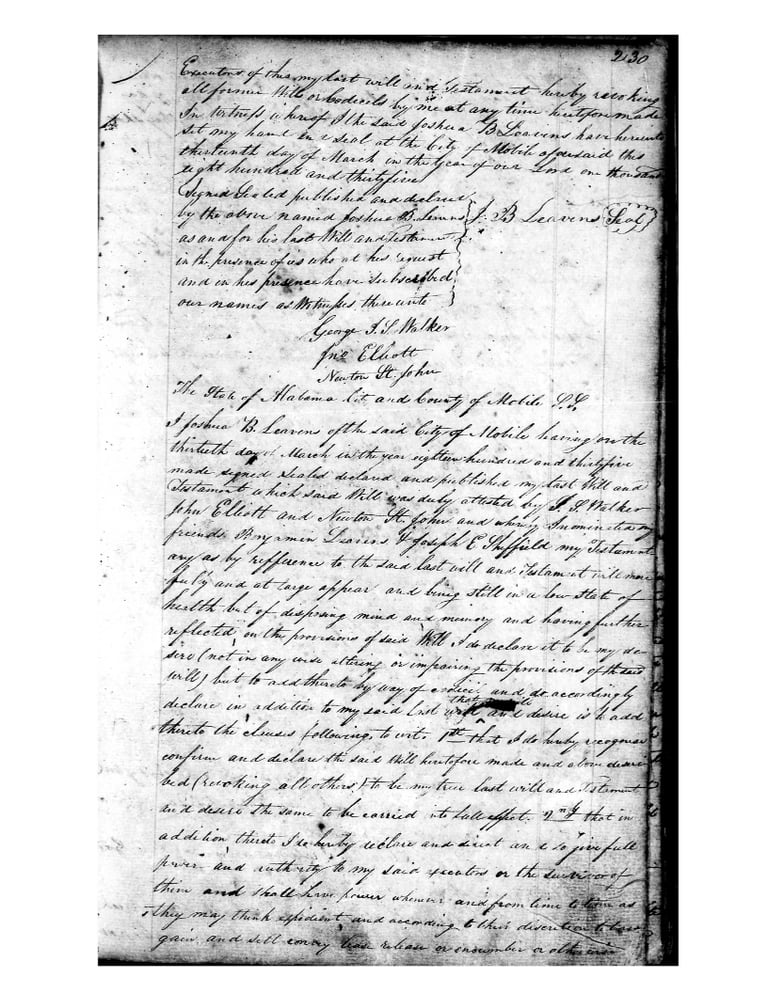 230
Executors of this my last will and Testament hereby revoking
all former Will or Codicils by me at any time heretofore made
In Witness whereof I the said Joshua B Leavens have hereunto
set my hand and seal at the City of Mobile aforesaid this
thirteenth day of March in the year of our Lord one thousand
eight hundred and thirtyfive
Signed Sealed published and declared
by the above named Joshua B. Leavens J. B Leavens Seal
as and for his last Will and Testament
in the presence of us who at his request
and in his presence have subscribed
our names as Witnesses thereunto
George J. S. Walker
Jno Elliott
Newton St. John
The State of Alabama Cit and County of Mobile S.S.
I Joshua B. Leavens of the said City of Mobile having on the
thirtieth day of March in the year eighteen hundred and thirtyfive
made signed sealed declared and published my last Will and
Testament which said Will was duly attested by J. S Walker
John Elliott and Newton St. John and whereby I nominated my
friends Benjamen Leavens & Joseph E Sheffield my Testament
ary as by refference to the said last will and Testament will more
fully and at large appear and being still in a low state of
health but of disposing mind and memory and having further
reflected on the provisions of said Will I do declare it to be my de-
sire (not in any wise altering or impairing the provisions of the said
will) but to add thereto by way of codicil and do accordingly
declare in addition to my said last will and desire is to add
thereto the clauses following to wit. 1st that I do hereby recognise
confirm and declare the said Will heretofore made and above descri
bed (revoking all others) to be my true last will and Testament
and desire the same to be carried into full effect. 2nd that in
addition thereto I do hereby declare and direct and do give full
power and authority to my said executors or the survivor of
them and shall have power whenever and from time to time as
they may think expedient and according to their discretion to bar
gain and sell convey lease release or encumber or otherwise